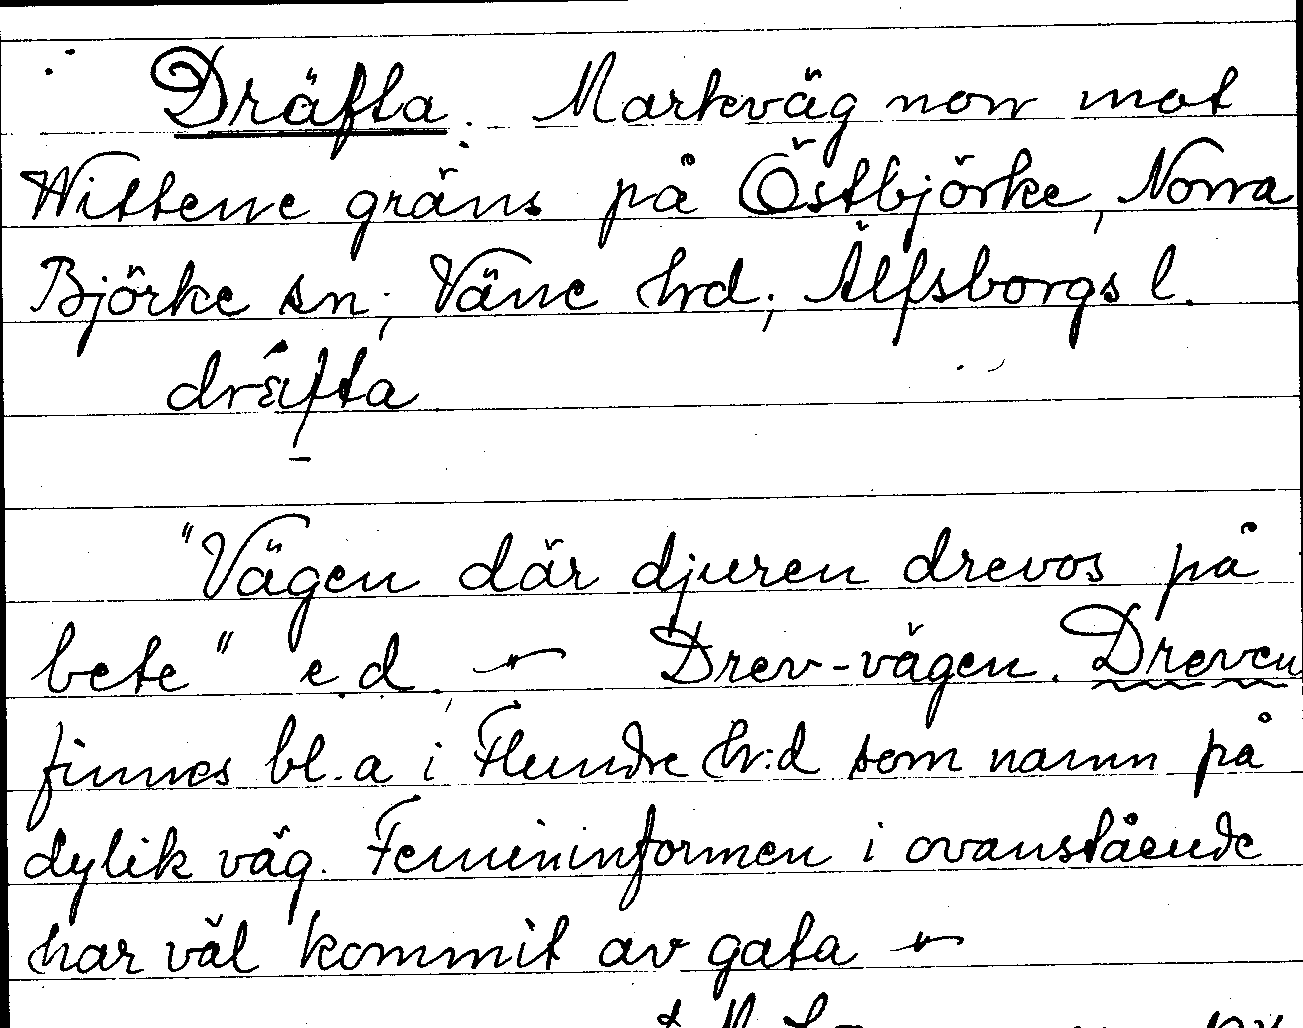 Dräfta. Markväg norr mot
Wittene gräns på Östbjörke, Norra
Björke sn; Väne hrd; Älfsborgs l.
dräfta
"Vägen där djuren drevos på
bete" e.d. Drev-vägen. Dreven
finnes bl.a i Flundre hr:d som namn på
dylik väg. Femininformen i ovanstående
har väl kommit av gata